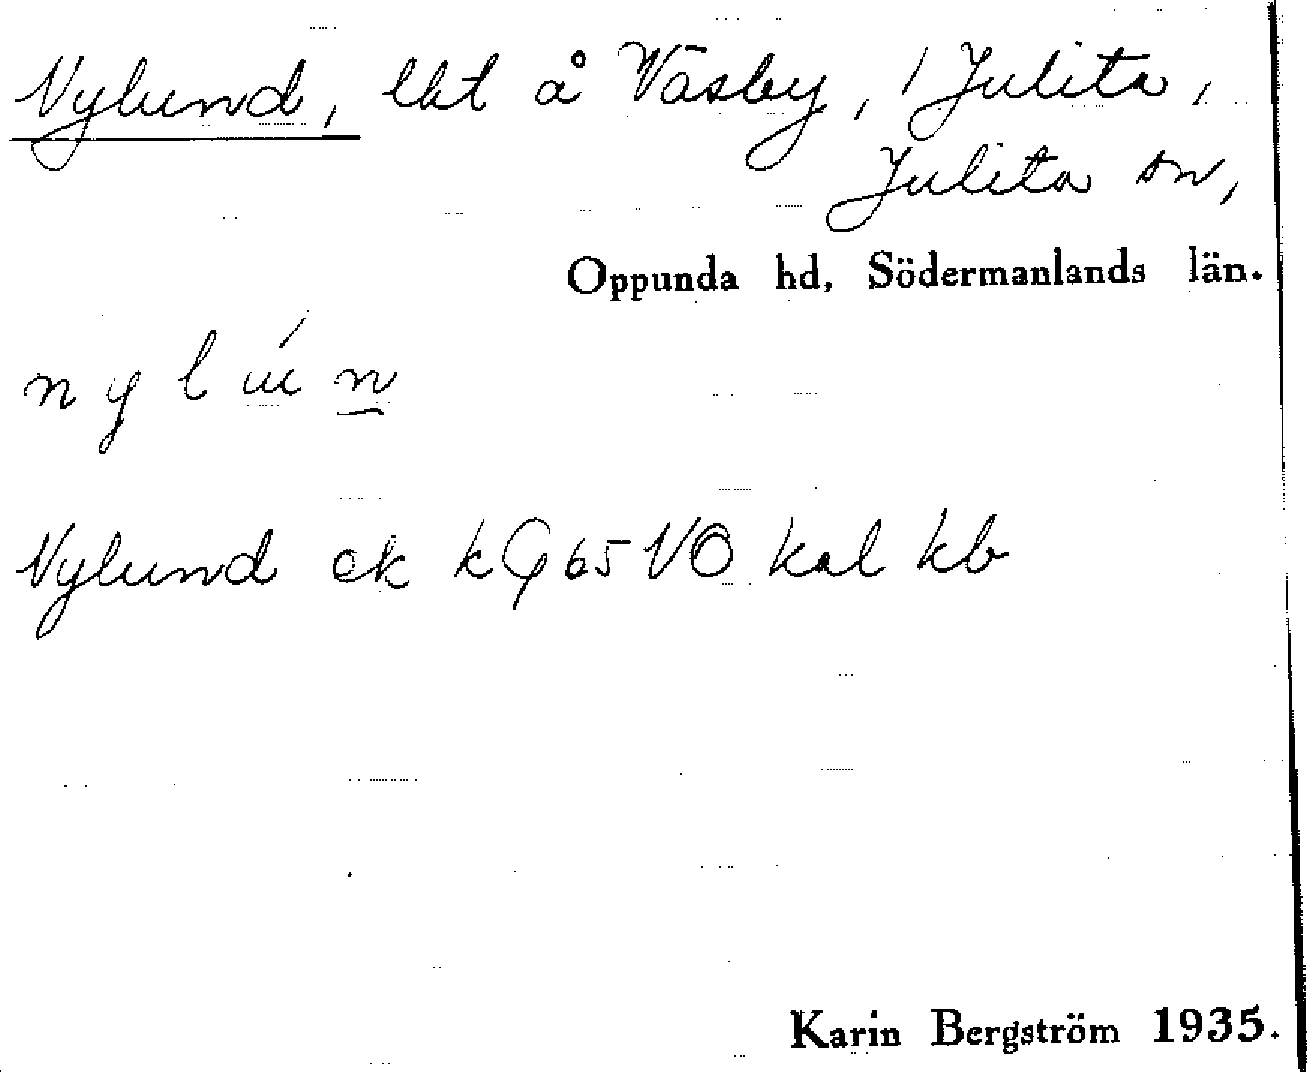 Nylund, lht å Väsby, 1 Julita,
Julita sn,
Oppunda hd, Södermanlands län.
n y l ú n
Nylund ek kQ 65 VO kal kb
Karin Bergström 1935.